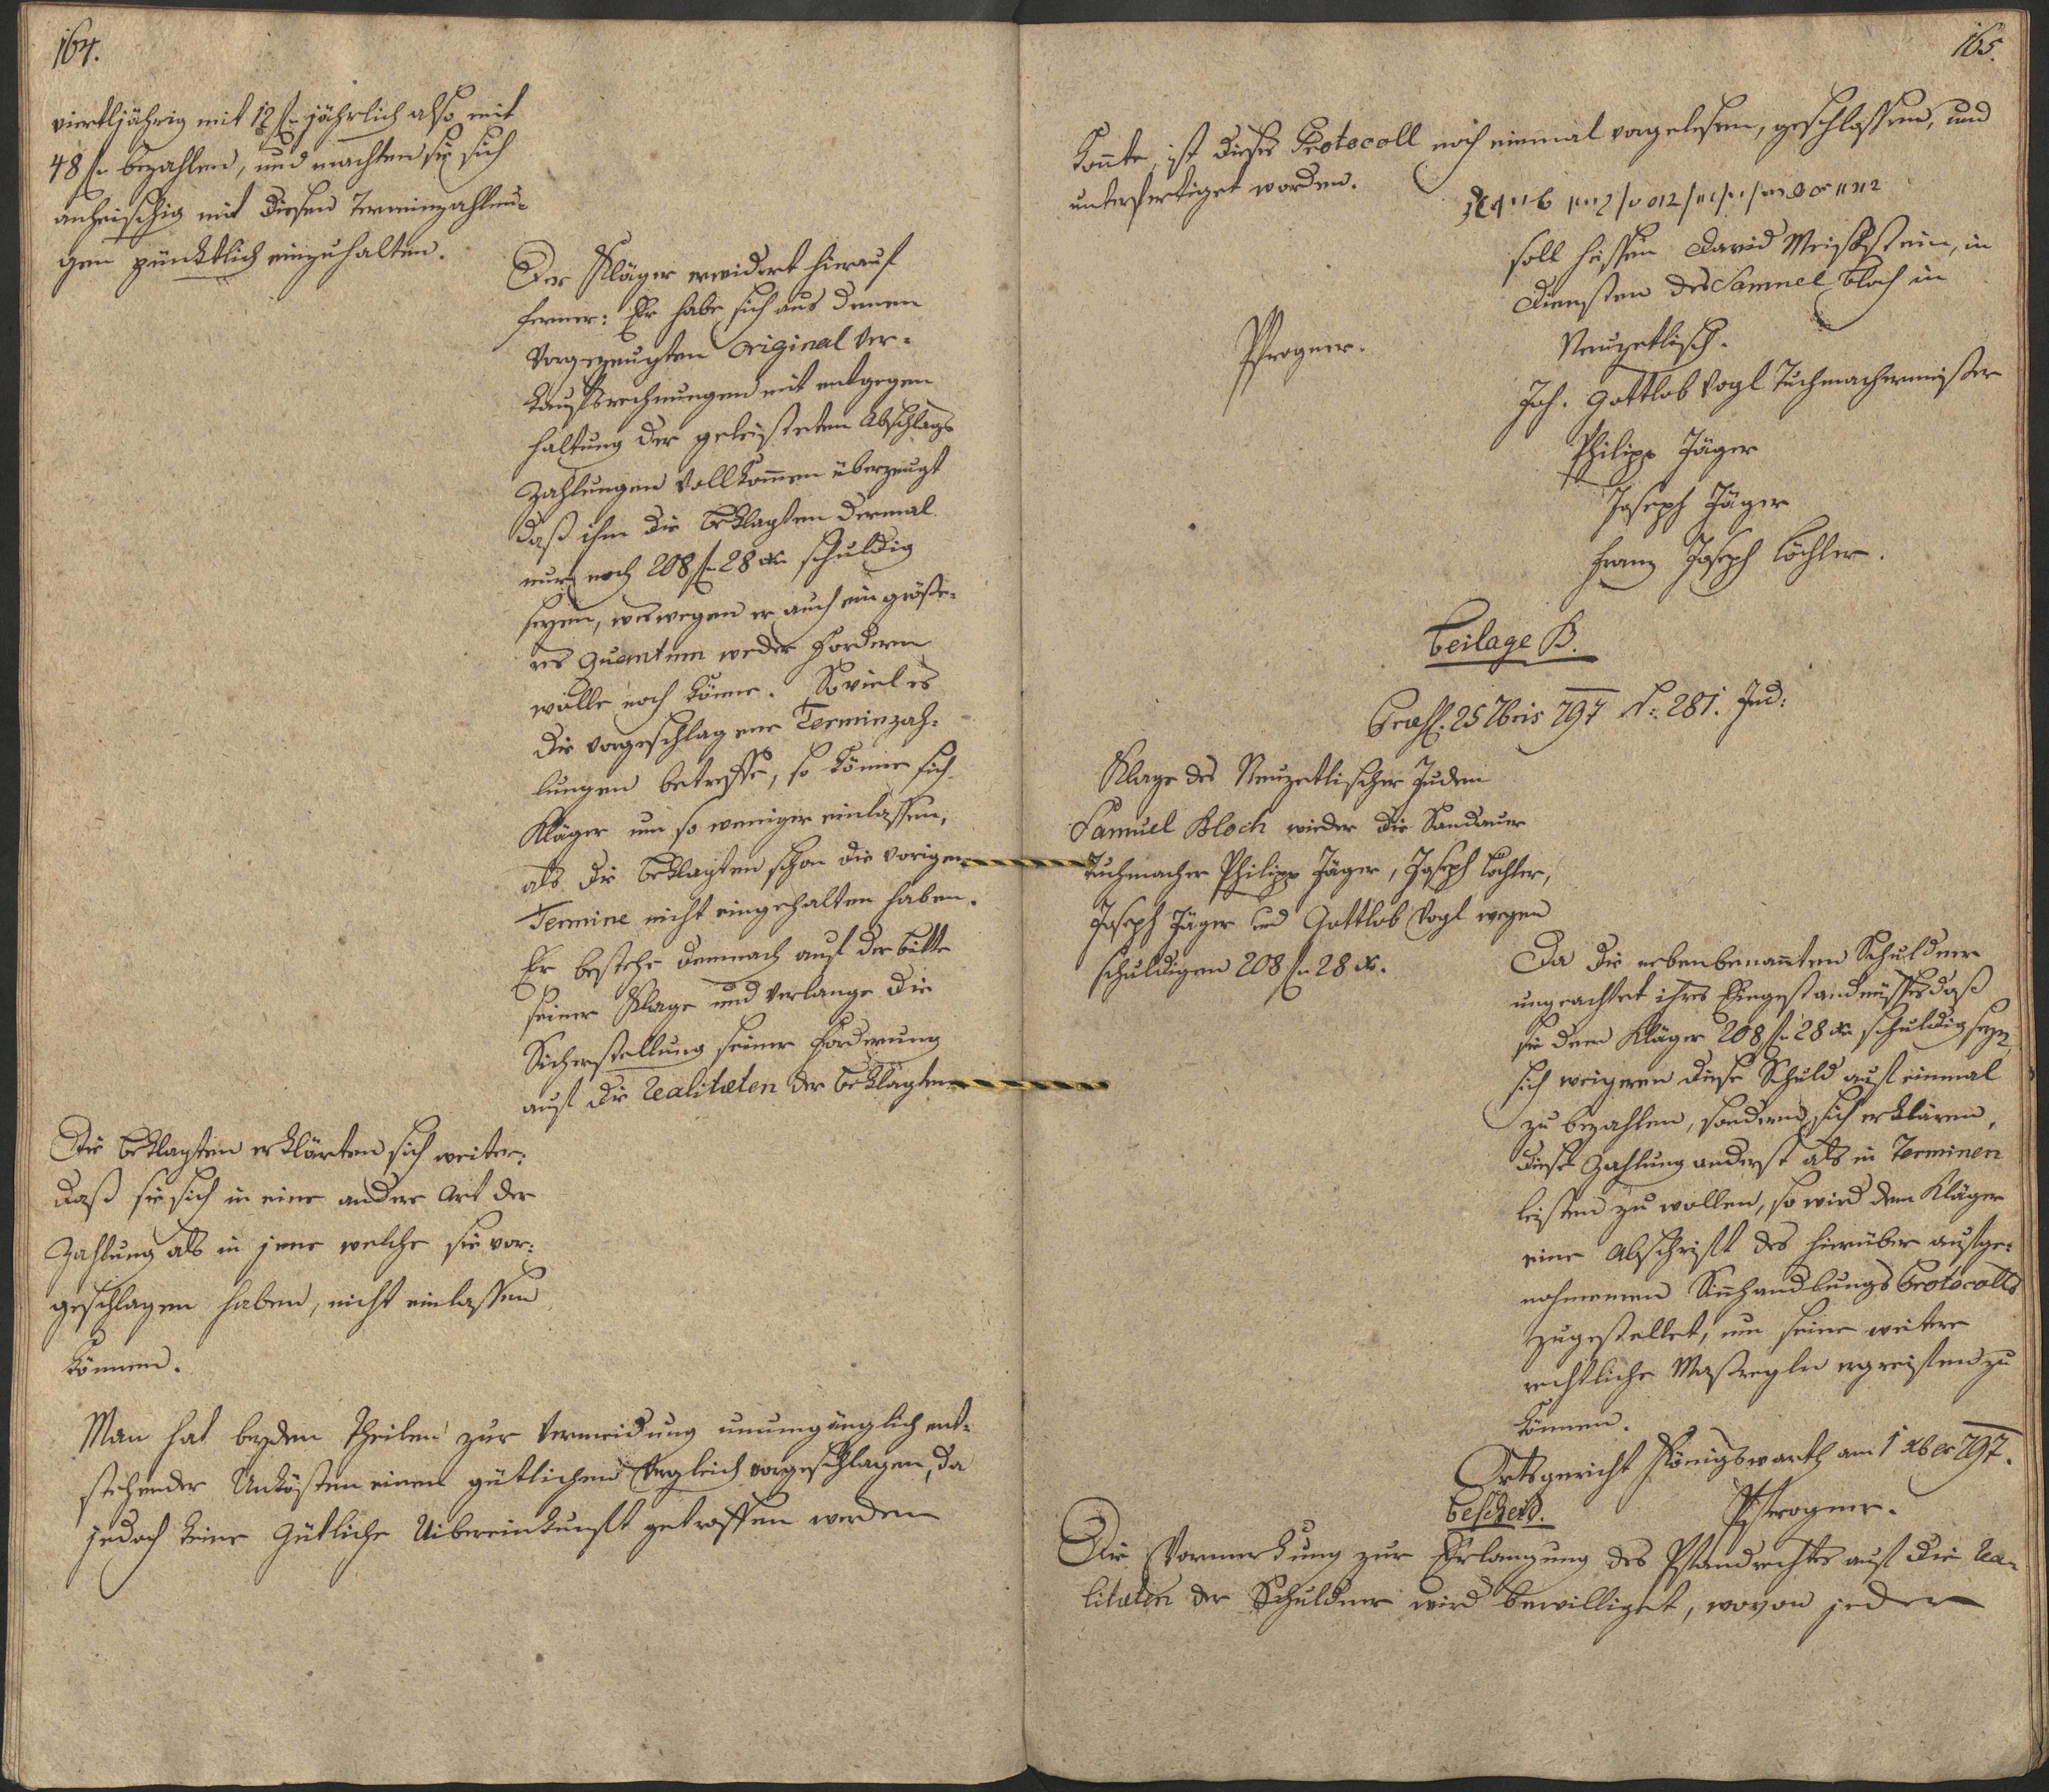 164.
viertljährig mit 12 f. jährlich also mit
48 f. bezahlen, und machten sie sich
anheischig mit diesen Terminzahlun-
gen pünktlich einzuhalten.
Der Kläger erwidert hierauf
ferner: Er habe sich aus denen
Vorgezeugten Original Ver-
kaufsrechnungen mit entgegen
haltung der geleisteten Abschlags
Zahlungen vollkom̄en überzeugt
daß ihm die Beklagten dermal
nur noch 208 f. 28 xr schuldig
seyen, weswegen er auch ein größe-
res Quantum weder fordern
wolle noch könne. Soviel es
die vorgeschlagene Terminzah-
lungen betreffe, so könne sich
Kläger um so weniger einlassen,
als die Beklagten schon die vorigen
Termine nicht eingehalten haben.
Er bestehe demnach auf der bitte
seiner Klage und Verlange die
Sicherstellung seiner Forderung
auf die Realitæten der Beklagten
Die Beklagten erklärten sich weiter:
daß sie sich in eine andere Art der
Zahlung als in jene welche sie vor-
geschlagen haben, nicht einlassen
können.
Man hat beyden Theilen zur Vermeidung unumgänglich ent-
stehender Unkösten einen gütlichen Vergleich vorgeschlagen, da
jedoch keine Gütliche Uibereinkunft getroffen werden
165.
konnte, ist dieses Protocoll noch einmal vorgelesen, geschlossen, und
unterfertiget worden.
soll heissen David Weisßtein, in
Diensten des Samuel Bloch in
Neuzetlisch.
Pfrogner.
Joh. Gottlob Vogl Tuchmachermeister
Philipp Jäger
Joseph Jäger
Franz Joseph Löchler.
Beilage B.
Præs. 25 7bris 797 N: 281. Jud:
Klage des Neuzetlischer Juden
Samuel Bloch wieder die Sandauer
Tuchmacher Philipp Jäger, Joseph Löchler,
Joseph Jäger und Gottlob Vogl wegen
schuldigen 208 f. 28 x.
Da die nebenbenan̄ten Schuldner
ungeachtet ihres Eingeständnisses daß
sie dem Kläger 208 f. 28 xr schuldig seyn
sich weigeren diese Schuld auf einmal
zu bezahlen, sondern sich erklären,
diese Zahlung anderst als in Terminen
leisten zu wollen, so wird dem Kläger
eine Abschrift des hierüber aufge-
nohmenen Protocolls
zugestellet, um seine weitere
rechtliche Maßregln ergreifen zu
können.
Ortsgericht Königswarth am 1 xber 797.
Pfrogner.
Bescheid.
Die Vormerkung zur Erlangung des Pfandrechtes auf die Rea-
litæten der Schuldner wird bewilliget, wovon jeder